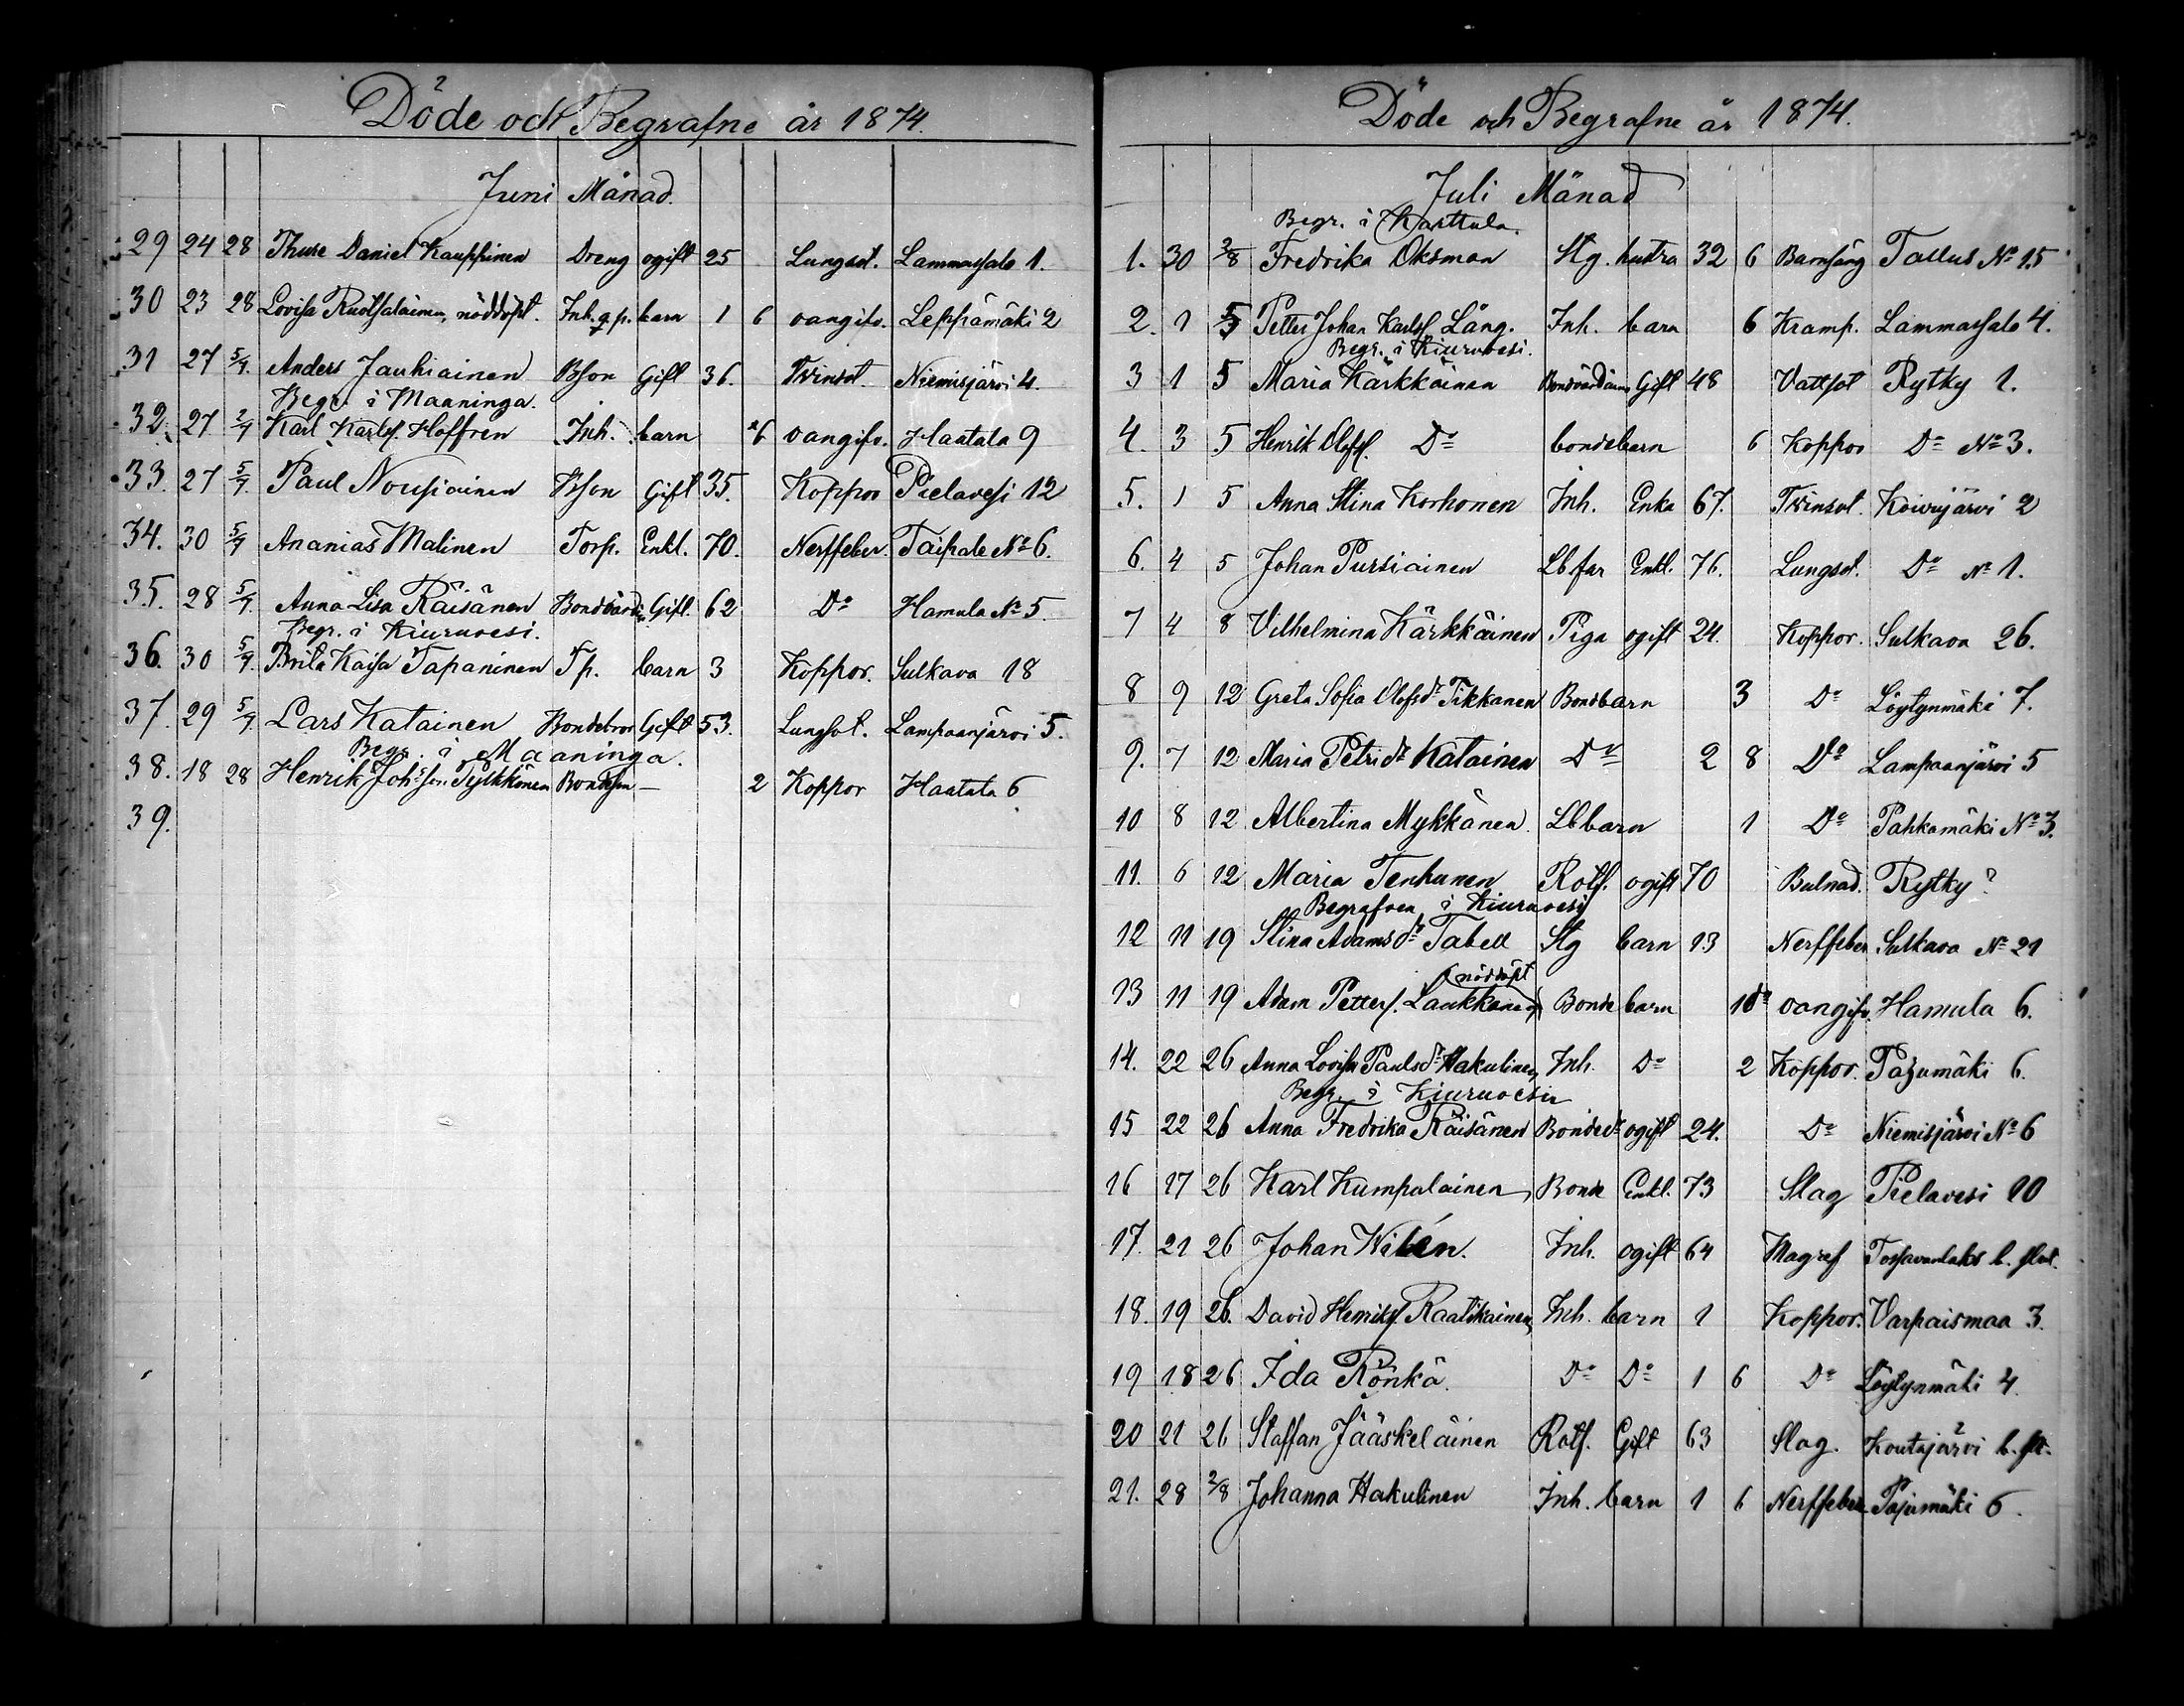 Döde och Begrafne år 1874.
Juni Månad.
29 24 28 Thure Daniel Kauppinen Dreng ogift 25 Lungsot. Lammassalo 1.
30 23 28 Lovisa Ruotsalainen, nöddöpt. Inh. q. p. barn 1 6 oangifv. Leppämäki 2
31 27 5/7 Anders Jauhiainen Bson Gift 36. Tvinsot. Niemisjärvi 4.
Begr. i Maaninga.
32. 27 2/7 Karl Karlss. Hoffren Inh. barn 6 oangifv. Haatala 9
33. 27 5/7. Paul Nousiainen Bson Gift 35. Koppor Pielavesi 12
34. 30 5/7 Ananias Malinen Torp. Enkl. 70. Nerffeber. Taipale No 6.
35. 28 5/7. Anna Lisa Räisänen Gift. 62 Do Hamula No 5
Begr. i Kiuruvesi.
36. 30 5/7. Brita Kaisa Tapaninen Tp. barn 3 Koppor. Sulkava 18
37. 29 5/7 Lars Katainen Bondebror Gift 53. Lungsot. Lampaanjärvi 5.
Begr. i Maaninga.
38. 18 28 Henrik Johsson Tyhkkönen Bondeson — 2 Koppor Haatala 6
39.
Döde och Begrafne år 1874.
Juli Månad
Begr. i Karttula.
1. 30 2/8 Fredrika Oksman Stg. hustra 32 6 Barnsäng Tallus No 15
2. 1 5 Petter Johan Karlss. Lång. Inh. barn 6 Kramp. Lammassalo 4.
Begr. i Kiuruvesi.
3 1 5 Maria Kärkkäinen Gift 48 Vattsot Rytky 1.
4. 3 5 Henrik Olofss. Do bondebarn 6 Koppor Do No 3.
5. 1 5 Anna Stina Korhonen Inh. Enka 67. Tvinsot. Koivujärvi 2
6. 4 5 Johan Pursiainen Lbfar Enkl. 76. Lungsot. Do No 1.
7 4 8 Vilhelmina Kärkkäinen Piga ogift 24. Koppor. Sulkava 26.
8 9 12 Greta Sofia Olofsdr Tikkanen Bondbarn 3 Do Löytynmäki 7.
9. 7 12 Maria Petridr Katainen Do 2 8 Do Lampaanjärvi 5
10 8 12 Albertina Mykkänen. Lbbarn 1 Do Pahkamäki No 3.
11. 6 12 Maria Tenhunen Rotf. ogift 70 Bulnad. Rytky?
Begrafven i Kiuruvesi
12 11 19 Stina Adamsdr Tabell Stg barn 13 Nerffeber Sulkava No 21
nöddöpt
13 11 19 Adam Petters. Laukkanen Bonde barn 10 oangifv. Hamula 6.
14. 22 26 Anna Lovisa Paulsdr Hakulinen, Inh. Do 2 Koppor. Pajumäki 6.
Begr. i Kiuruvesi
15 22 26 Anna Fredrika Räisänen Bondedr ogift 24. Do Niemisjärvi No 6
16 17 26 Karl Kumpulainen, Bonde Enkl. 73 Slag Pielavesi 10
17. 21 26 Johan Wilén. Inh. ogift 64 Magref
18. 19 26. David Henrikss. Raatikainen, Inh. barn 1 Koppor. Varpaismaa 3.
19 18 26 Ida Rönkä. Do Do 1 6 Do Löytynmäki 4.
20 21 26 Staffan Jääskeläinen Rotf. Gift 63 Slag. Koutajärvi
21. 28 2/8 Johanna Hakulinen Inh. barn 1 6 Nerffeber Pajumäki 6.